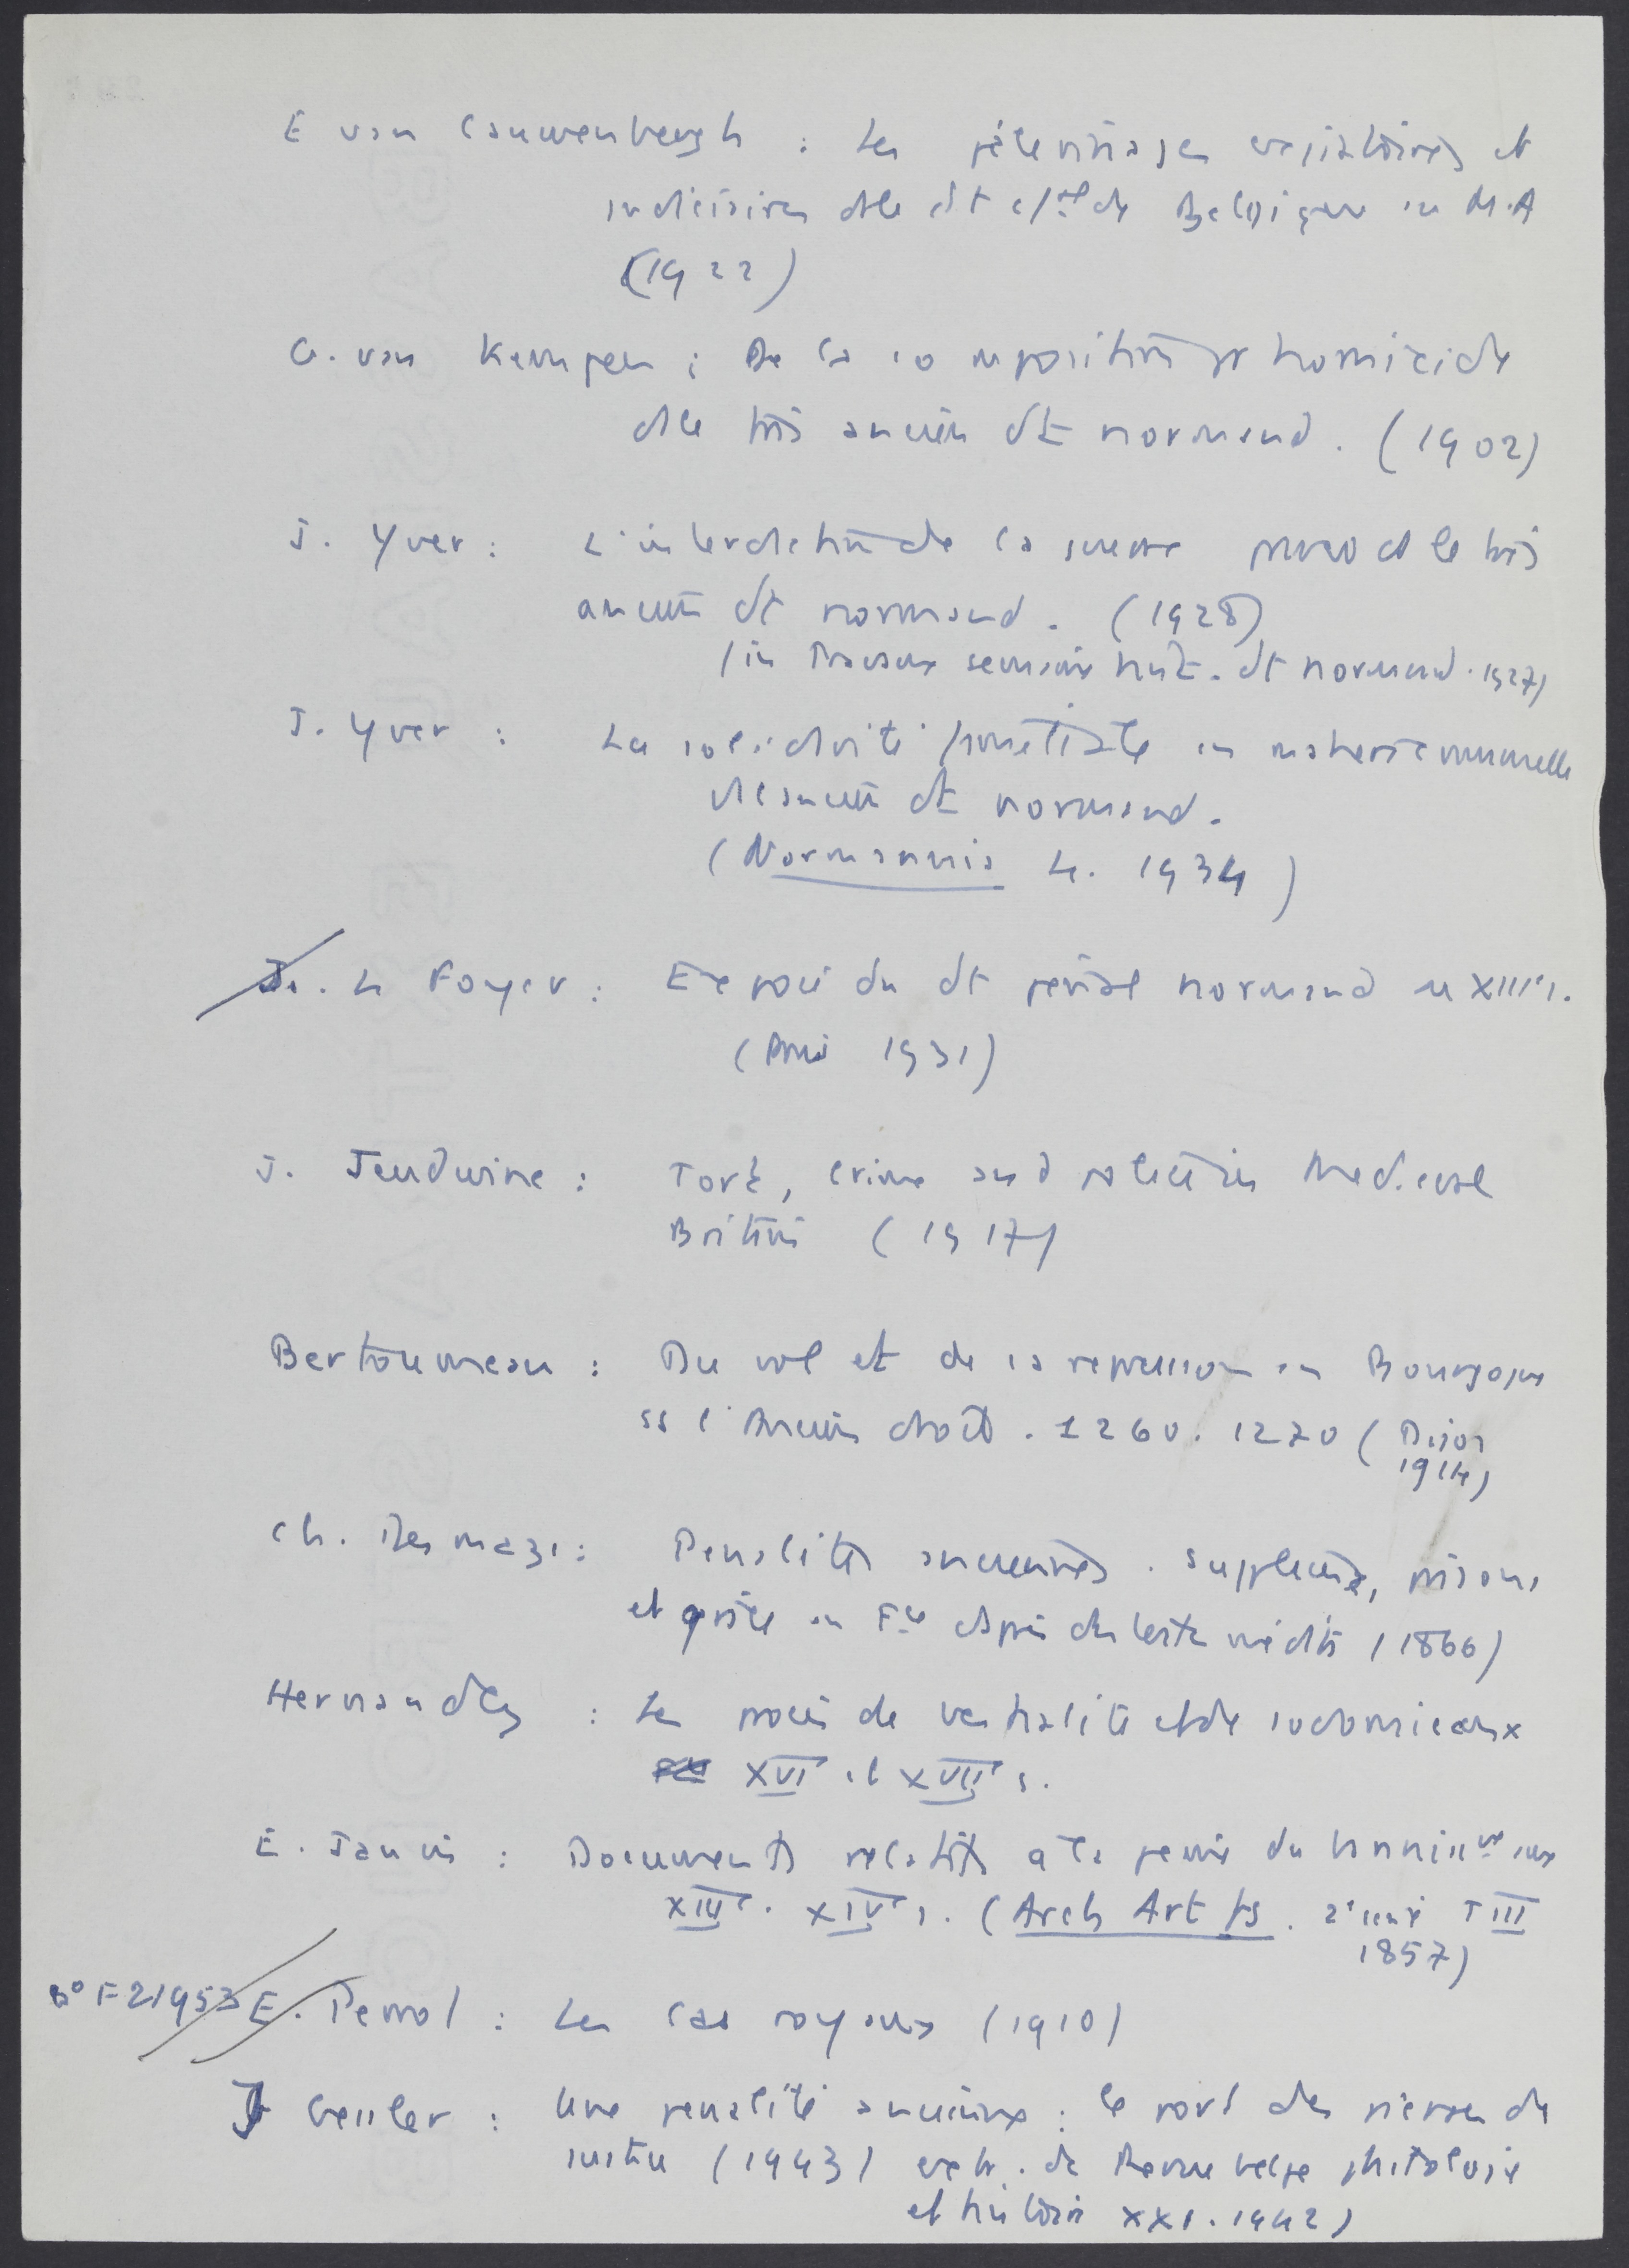 E van Cauwenbergh : Les pèlerinages expiatoires et
judiciaires ds le dt c/al de Belgique au M.A
(1922)
G. van Kempen : De la composition pr homicide
ds le très ancien dt normand. (1902)
J. Yver : L'interdiction de la guerre privée ds le très
ancien dt normand. (1928)
(in Travaux semaine hist. dt normand. 1927)
J. Yver : La solidarité familiale en matière criminelle
ds ancien dt normand.
(Normannia 4. 1934)
J. Le Foyer : Exposé du dt pénal normand au XIIIe s.
(Paris 1931)
J. Jeudwine : Tort, crime and police in Medieval
Britain (1917)
Bertoumeau : Du vol et de sa repression en Bourgogne
ss l'Ancien droit. 1260. 1270 (Dijon
1914)
Ch. Desmaze : Penalités anciennes. Supplices, prisons
et grâce en Fce d'après des textes inédits (1866)
Hernandez : Les procès de bestialité et de sodomie aux
XVIe et XVIIe s.
E. Janvis : Documents relatifs à la peine du bannissnt aux
XIIIe. XIVe s. (Arch Art fs. 2e serie T III
1857)
8° F 21953 E. Perrot : Les Cas royaux (1910)
J Gessler : Une penalité ancienne : le port des pierres de
justice (1943) extr. de Revue belge philologie
et histoire XXI. 1942)